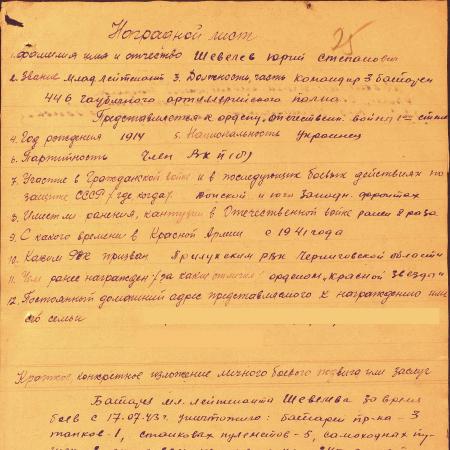 Наградной лист
25
1. Фамилия имя и отчество Шевелев Юрий Степанович
2. Звание млад лейтенант 3. Должность, часть командир 3 батареи
446 гаубичного артиллерийского полка.
Представляется к ордену, Отечествен войны I степ
4. Год рождения 1914 5. Национальность Украинец
6. Партийность Член ВКП(б)
7. Участие в Гражданской войне и в последующих боевых действиях по
защите СССР /где когда/ Донской и юго Западн. фронтах
8. Имеет ли ранения, контузии в Отечественной войне ранен 2 раза
9. С какого времени в Красной Армии с 1941 года
10. Каким РВК призван Прилукским РВК Черниговской области
11. Чем ранее награжден /за какие отличия/ орденом "Красной Звезда"
12. Постоянный домашний адрес представляемого к награждению или
его семьи
Краткое, конкретное изложение личного боевого подвига или заслуг
Батарея мл. лейтенанта Шевелева за время
боев с 17.07.43г. уничтожила: батарей пр-ка - 3
танков - 1, станковых пулеметов - 5, самоходных пу